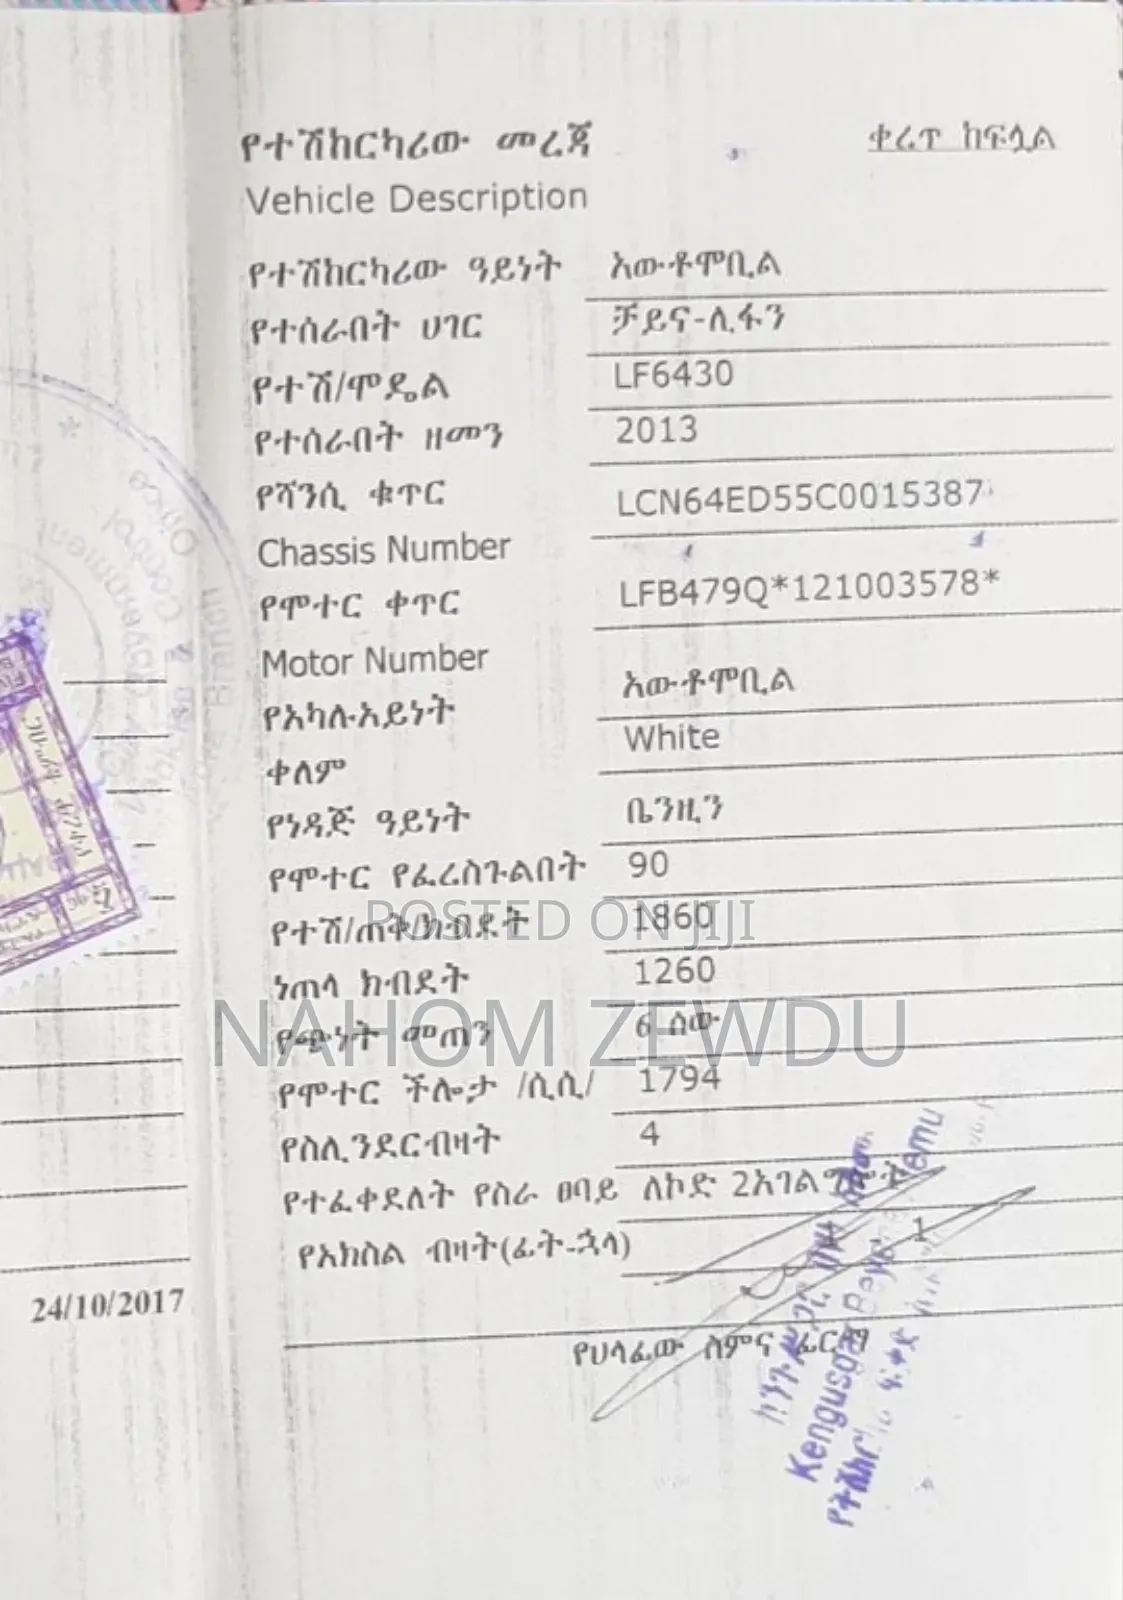 የተሽከርካሪው መረጃ
ቀረጥ ከፍሏል
Vehicle Description
የተሽከርካሪው ዓይነት አውቶሞቢል
የተሰራበት ሀገር ቻይና-ሊፋን
የተሽ/ሞዴል LF6430
የተሰራበት ዘመን 2013
የሻንሲ ቁጥር LCN64ED55C0015387
Chassis Number
የሞተር ቀጥር LFB479Q*121003578*
Motor Number
የአካሉአይነት አውቶሞቢል
ቀለም White
የነዳጅ ዓይነት ቤንዚን
የሞተር የፈረስጉልበት 90
የተሽ/ጠቅ/ክብደት 1860
POSTED ON JIJI
ነጠላ ክብደት 1260
NAHOM ZEWDU
የጭነት መጠን 6 ሰው
የሞተር ችሎታ /ሲሲ/ 1794
የስሊንደርብዛት 4
የተፈቀደለት የስራ ፀባይ ለኮድ 2አገልግሎት
የአክስል ብዛት(ፊት-ኋላ) 1
24/10/2017
የሀላፊው ስምና ፊርማ
Kengusgar